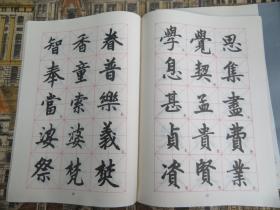 思集盡費業
覺契孟貴賢
學息甚貞資
眷普樂義焚
香童索婆梵
智奉當祭